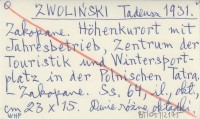 ZWOLIŃSKI Tadeusz 1931.
Zakopane. Höhenkurort mit
Jahresbetrieb, Zentrum der
Touristik und Wintersport-
platz in der Polnischen Tatra.
– Zakopane. Ss. 64, il., okt.,
cm 23 x 15. Dwie różne okładki
WHP